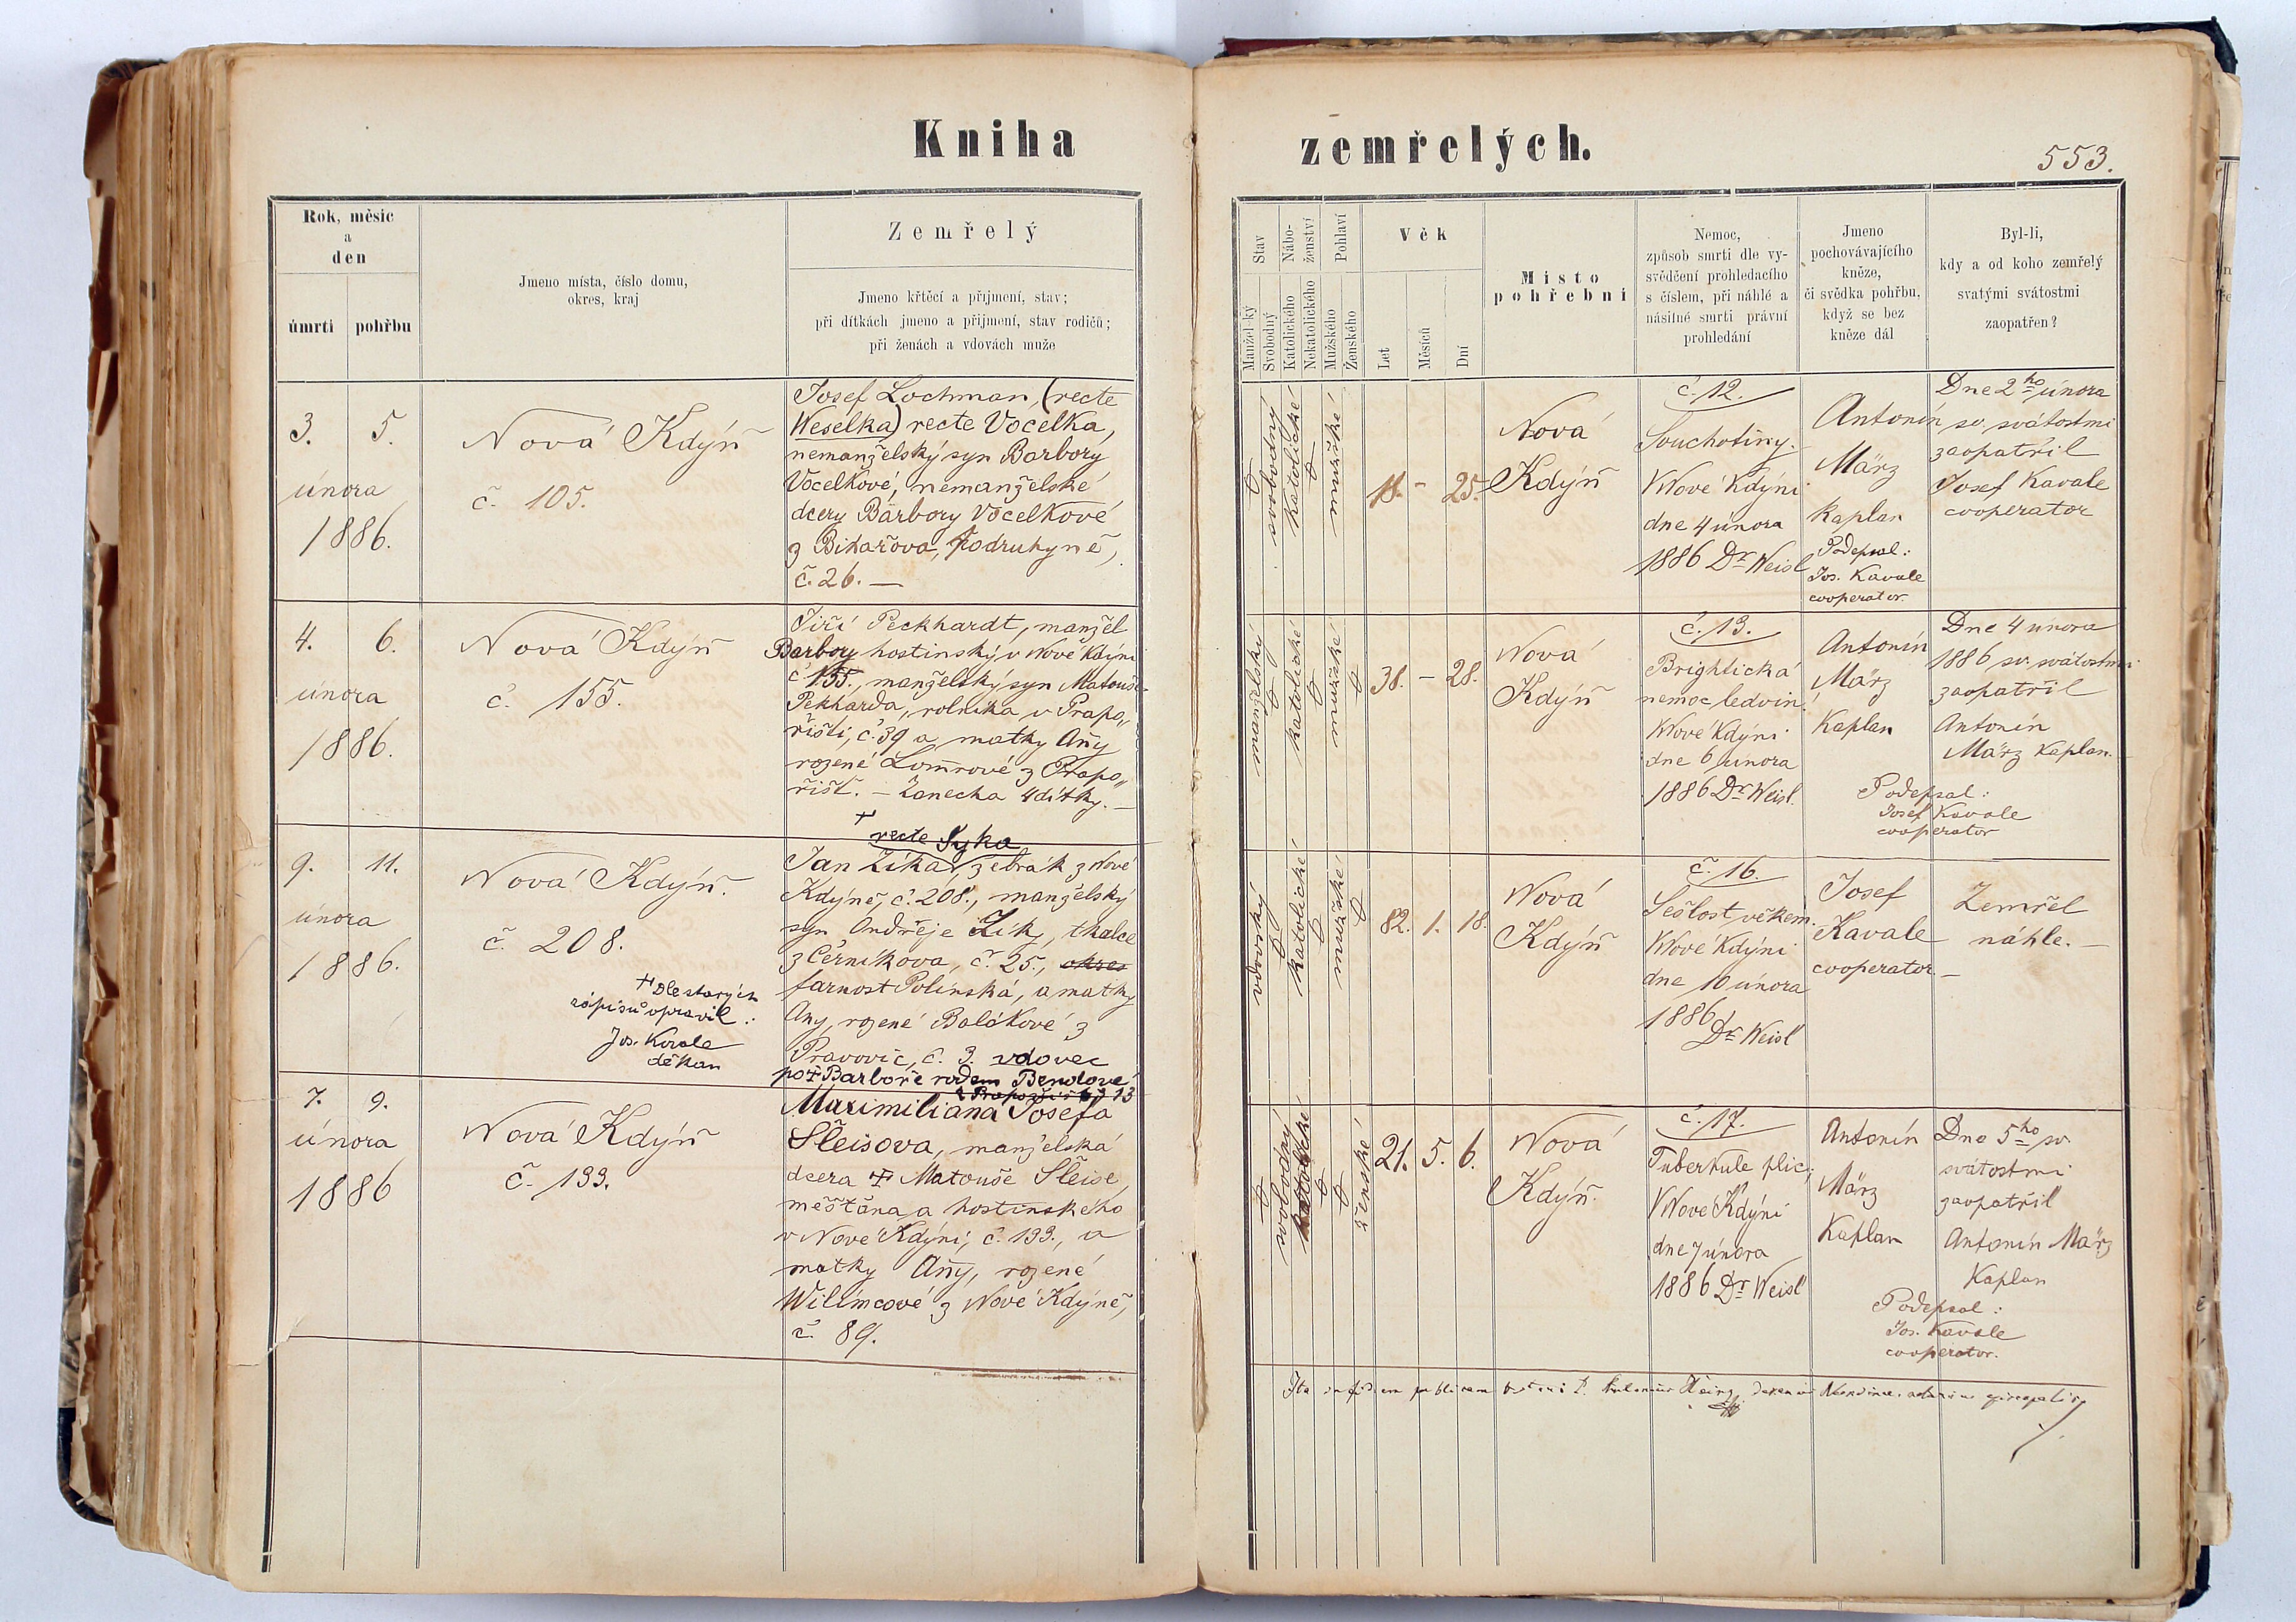 Kniha zemřelých.
553.
Rok, měsíc
a
den
úmrtí
pohřbu
Jmeno místa, číslo domu,
okres, kraj
Zemřelý
Jmeno křtěcí a příjmení, stav;
při dítkách jmeno a příjmení, stav rodičů;
při ženách a vdovách muže
Stav
Manžel-ký
Svobodný
Nábo-
ženství
Katolického
Nekatolického
Pohlaví
Mužského
Ženského
Věk
Let
Měsíců
Dní
Místo
pohřební
Nemoc,
způsob smrti dle vy-
svědčení prohledacího
s číslem, při náhlé a
násilné smrti právní
prohledání
Jmeno
pochovávajícího
kněze,
či svědka pohřbu,
když se bez
kněze dál
Byl-li,
kdy a od koho zemřelý
svatými svátostmi
zaopatřen?
3. 5.
února
1886.
Nová Kdýň
č. 105.
Josef Lochman, (recte
Weselka) recte Vocelka,
nemanželský syn Barbory
Vocelkové, nemanželské
dcery Barbory Vocelkové
z Bikařova, podruhyně,
č. 26. —
svobodný
katolické
mužské
18. - 25.
Nová
Kdýň
č. 12.
Souchotiny.
V Nové Kdýni
dne 4 února
1886 Dr Weisl
Antonín
März
kaplan
Podepsal:
Jos. Kavale
cooperator.
Dne 2ho února
sv. svátostmi
zaopatřil
Josef Kavale
cooperator
4. 6.
února
1886.
Nová Kdýň
č. 155.
Jiří Peckhardt, manžel
Barbory hostinský v Nové Kdýni
č. 155., manželský syn Matouše
Pekharda, rolníka v Prapo„
řišti, č. 39 a matky Anny
rozené Lomrové z Prapo„
řišť. — Zanechá 4 dítky. —
manželský
katolické
mužské
38. - 28.
Nová
Kdýň
č. 13.
Brightická
nemoc ledvin.
V Nové Kdýni
dne 6 února
1886 Dr Weisl.
Antonín
März
Kaplan
Podepsal:
Josef Kavale
cooperator
Dne 4 února
1886 sv. svátostmi
zaopatřil
Antonín
März Kaplan.
9. 11.
února
1886.
Nová Kdýň.
č. 208.
+ Dle starých
zápisů opravil:
Jos. Kavale
děkan
+
recte Syka
Jan Zíka, žebrák z Nové
Kdýně, č. 208., manželský
syn Ondřeje Zíky, tkalce
z Černíkova, č. 25., okres
farnost Polínská, a matky
Any, rozené Balákové z
Pravovic, č. 3. vdovec
po + Barboře rodem Bendové
z Prapořišť č 13
vdovský
katolické
mužské
82. 1. 18.
Nová
Kdýň
č. 16.
Sešlost věkem.
V Nové Kdýni
dne 10 února
1886
Dr Weisl
Josef
Kavale
cooperator. —
Zemřel
náhle. —
7. 9.
února
1886
Nová Kdýň
č. 133.
Maximiliana Josefa
Šleisova, manželská
dcera + Matouše Šleise,
měštana a hostinského
v Nové Kdýni, č. 133., a
matky Anny, rozené
Wilímcové z Nové Kdýně,
č. 89.
svobodný
katolické
ženské
21. 5. 6.
Nová
Kdýň.
č. 17.
Tuberkule plic;
V Nové Kdýni
dne 7 února
1886 Dr Weisl
Antonín
März
Kaplan
Podepsal:
Jos. Kavale
cooperator.
Dne 5ho sv.
svátostmi
zaopatřil
Antonín März
Kaplan
Ita in fidem publicam